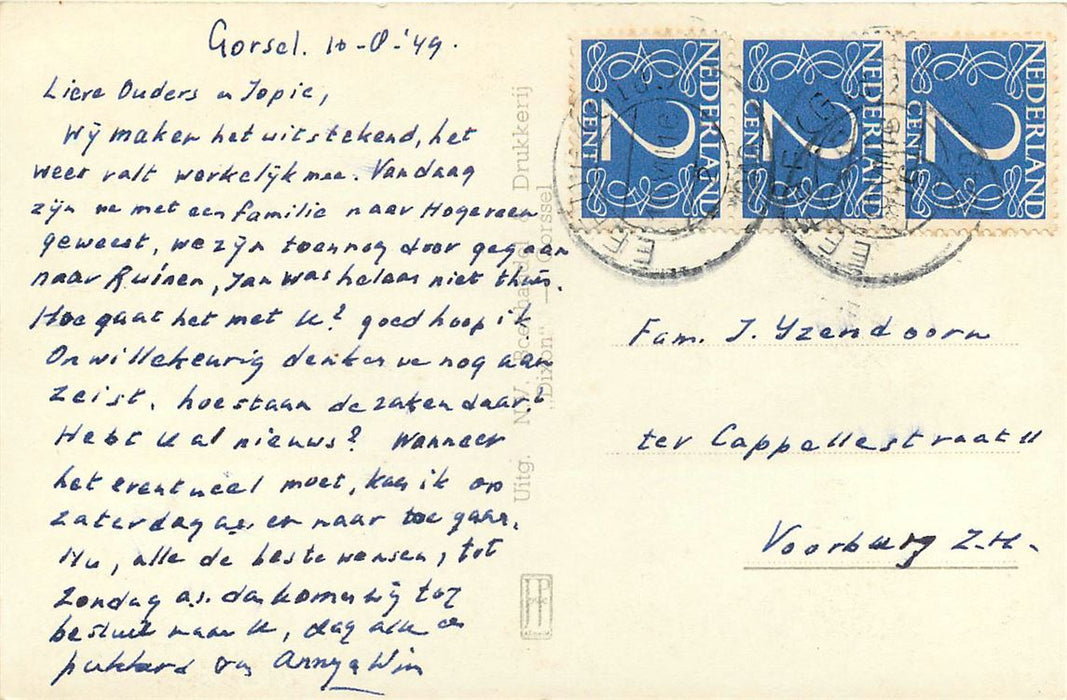 Gorsel. 10-8-'49.
Lieve Ouders en Jopie,
Wij maken het uitstekend, het
weer valt werkelijk mee. Vandaag
zijn we met een familie naar Hogeveen
geweest, we zijn toen nog door gegaan
naar Ruinen, Jan was helaas niet thuis.
Hoe gaat het met U? goed hoop ik
Onwillekeurig denken we nog aan
Zeist. hoe staan de zaken daar?
Hebt U al nieuws? Wanneer
het eventueel moet, kan ik op
Zaterdag a.s. er naar toe gaan.
Nu, alle de beste wensen, tot
Zondag a.s. dan komen wij tot
besluit naar U, dag alle en
van Anny en Wim
Uitg. N.V. Boekhandel Drukkerij
„Dixon" — Gorssel
NEDERLAND
2
CENT
NEDERLAND
2
CENT
NEDERLAND
2
CENT
Fam. J. Yzendoorn
ter Cappellestraat 11
Voorburg Z.H.